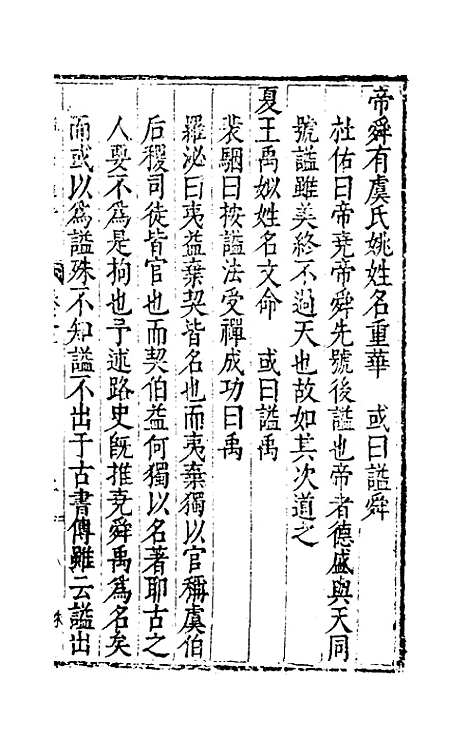 帝舜有虞氏姚姓名重華　或曰謚舜
杜佑曰帝堯帝舜先號後謚也帝者德盛與天同
號謚雖美終不過天也故如其次道之
夏王禹姒姓名文命　或曰謚禹
裴駰曰按謚法受禪成功曰禹
羅泌曰夷益棄契皆名也而夷棄獨以官稱虞伯
后稷司徒皆官也而契伯益何獨以名著耶古之
人要不爲是拘也予述路史旣推堯舜禹爲名矣
而或以爲謚殊不知謚不出于古書傳雖云謚出